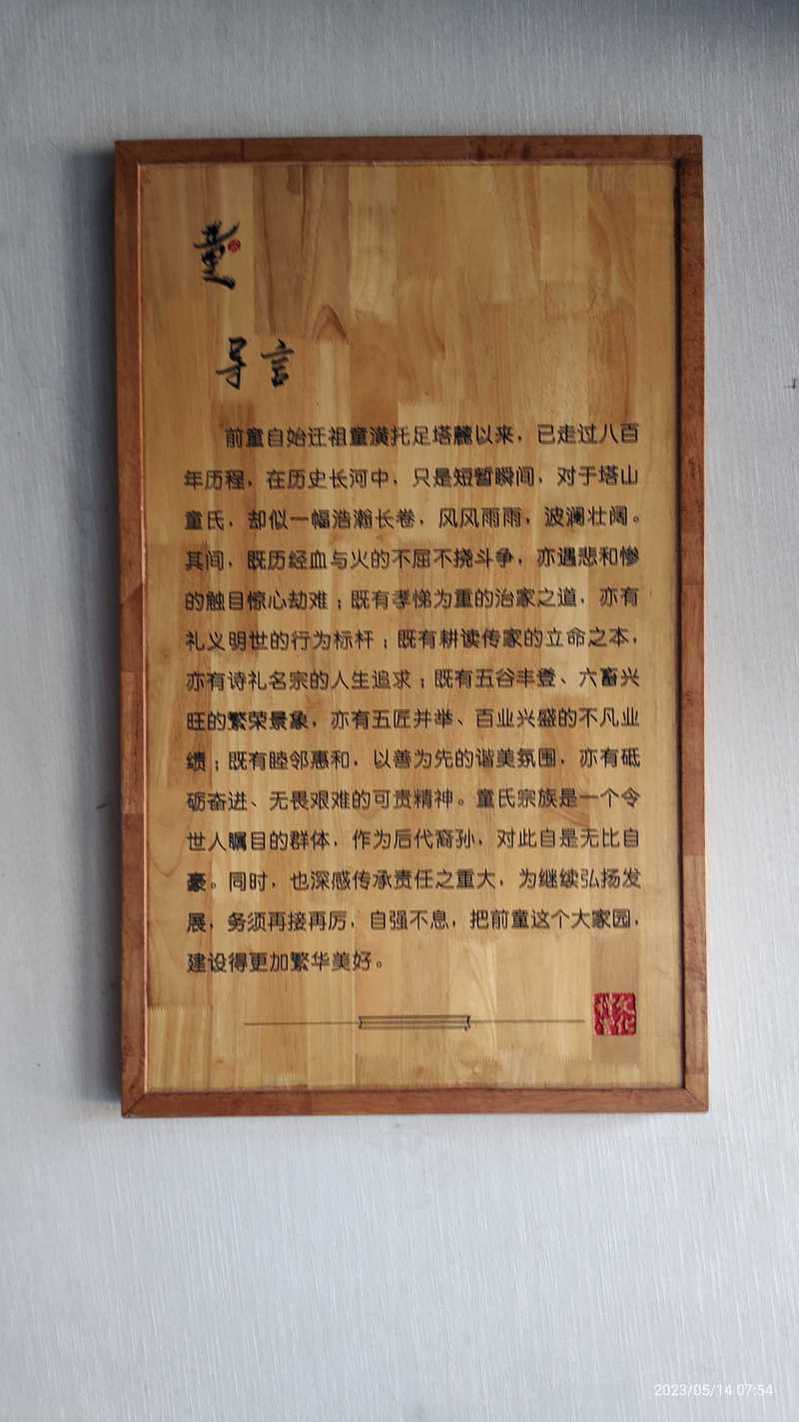 童
导言
前童自始迁祖童潢托足塔麓以来，已走过八百
年历程，在历史长河中，只是短暂瞬间，对于塔山
童氏，却似一幅浩瀚长卷，风风雨雨，波澜壮阔。
其间，既历经血与火的不屈不挠斗争，亦遇悲和惨
的触目惊心劫难；既有孝悌为重的治家之道，亦有
礼义明世的行为标杆；既有耕读传家的立命之本，
亦有诗礼名宗的人生追求；既有五谷丰登、六畜兴
旺的繁荣景象，亦有五匠并举、百业兴盛的不凡业
绩；既有睦邻惠和，以善为先的谐美氛围，亦有砥
砺奋进、无畏艰难的可贵精神。童氏宗族是一个令
世人瞩目的群体，作为后代裔孙，对此自是无比自
豪。同时，也深感传承责任之重大，为继续弘扬发
展，务须再接再厉，自强不息，把前童这个大家园，
建设得更加繁华美好。
2023/05/14 07:54